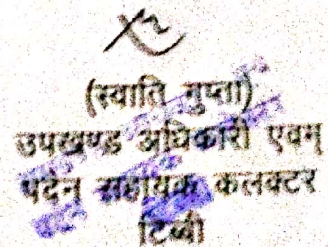 (स्वाति गुप्ता)
उपखण्ड अधिकारी एवम्
पदेन सहायक कलक्टर
टिब्बी